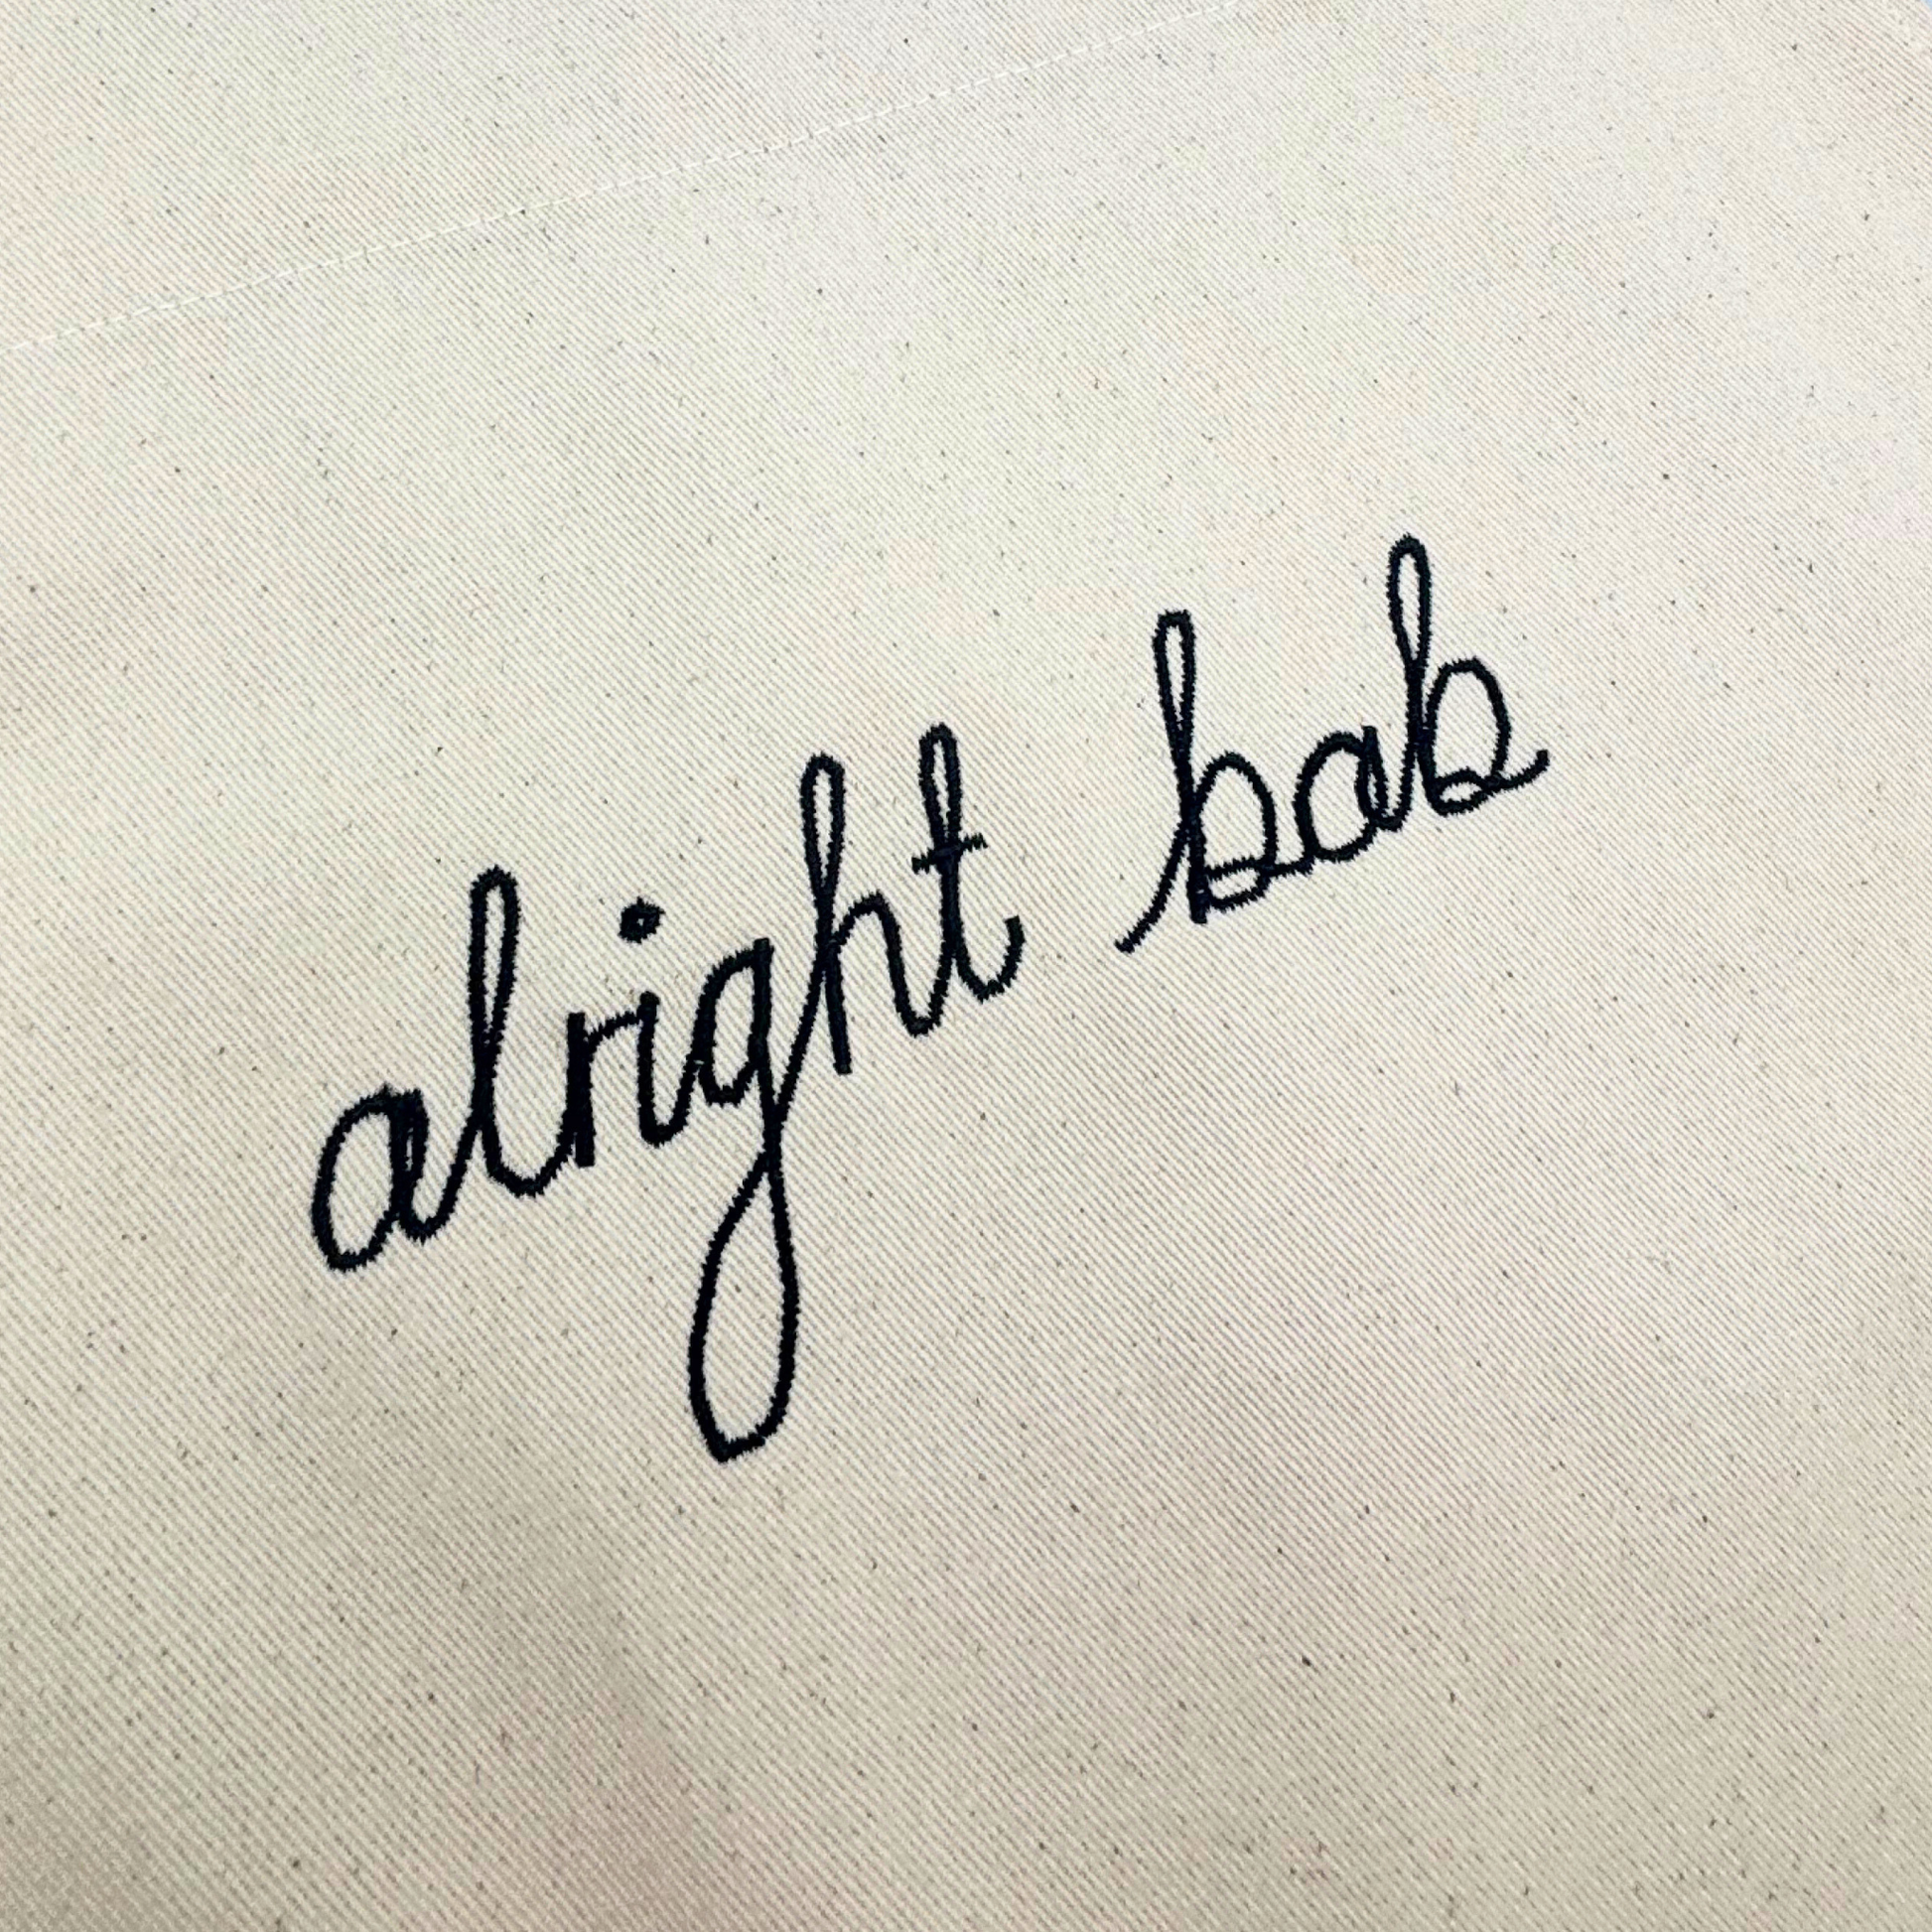 alright bab